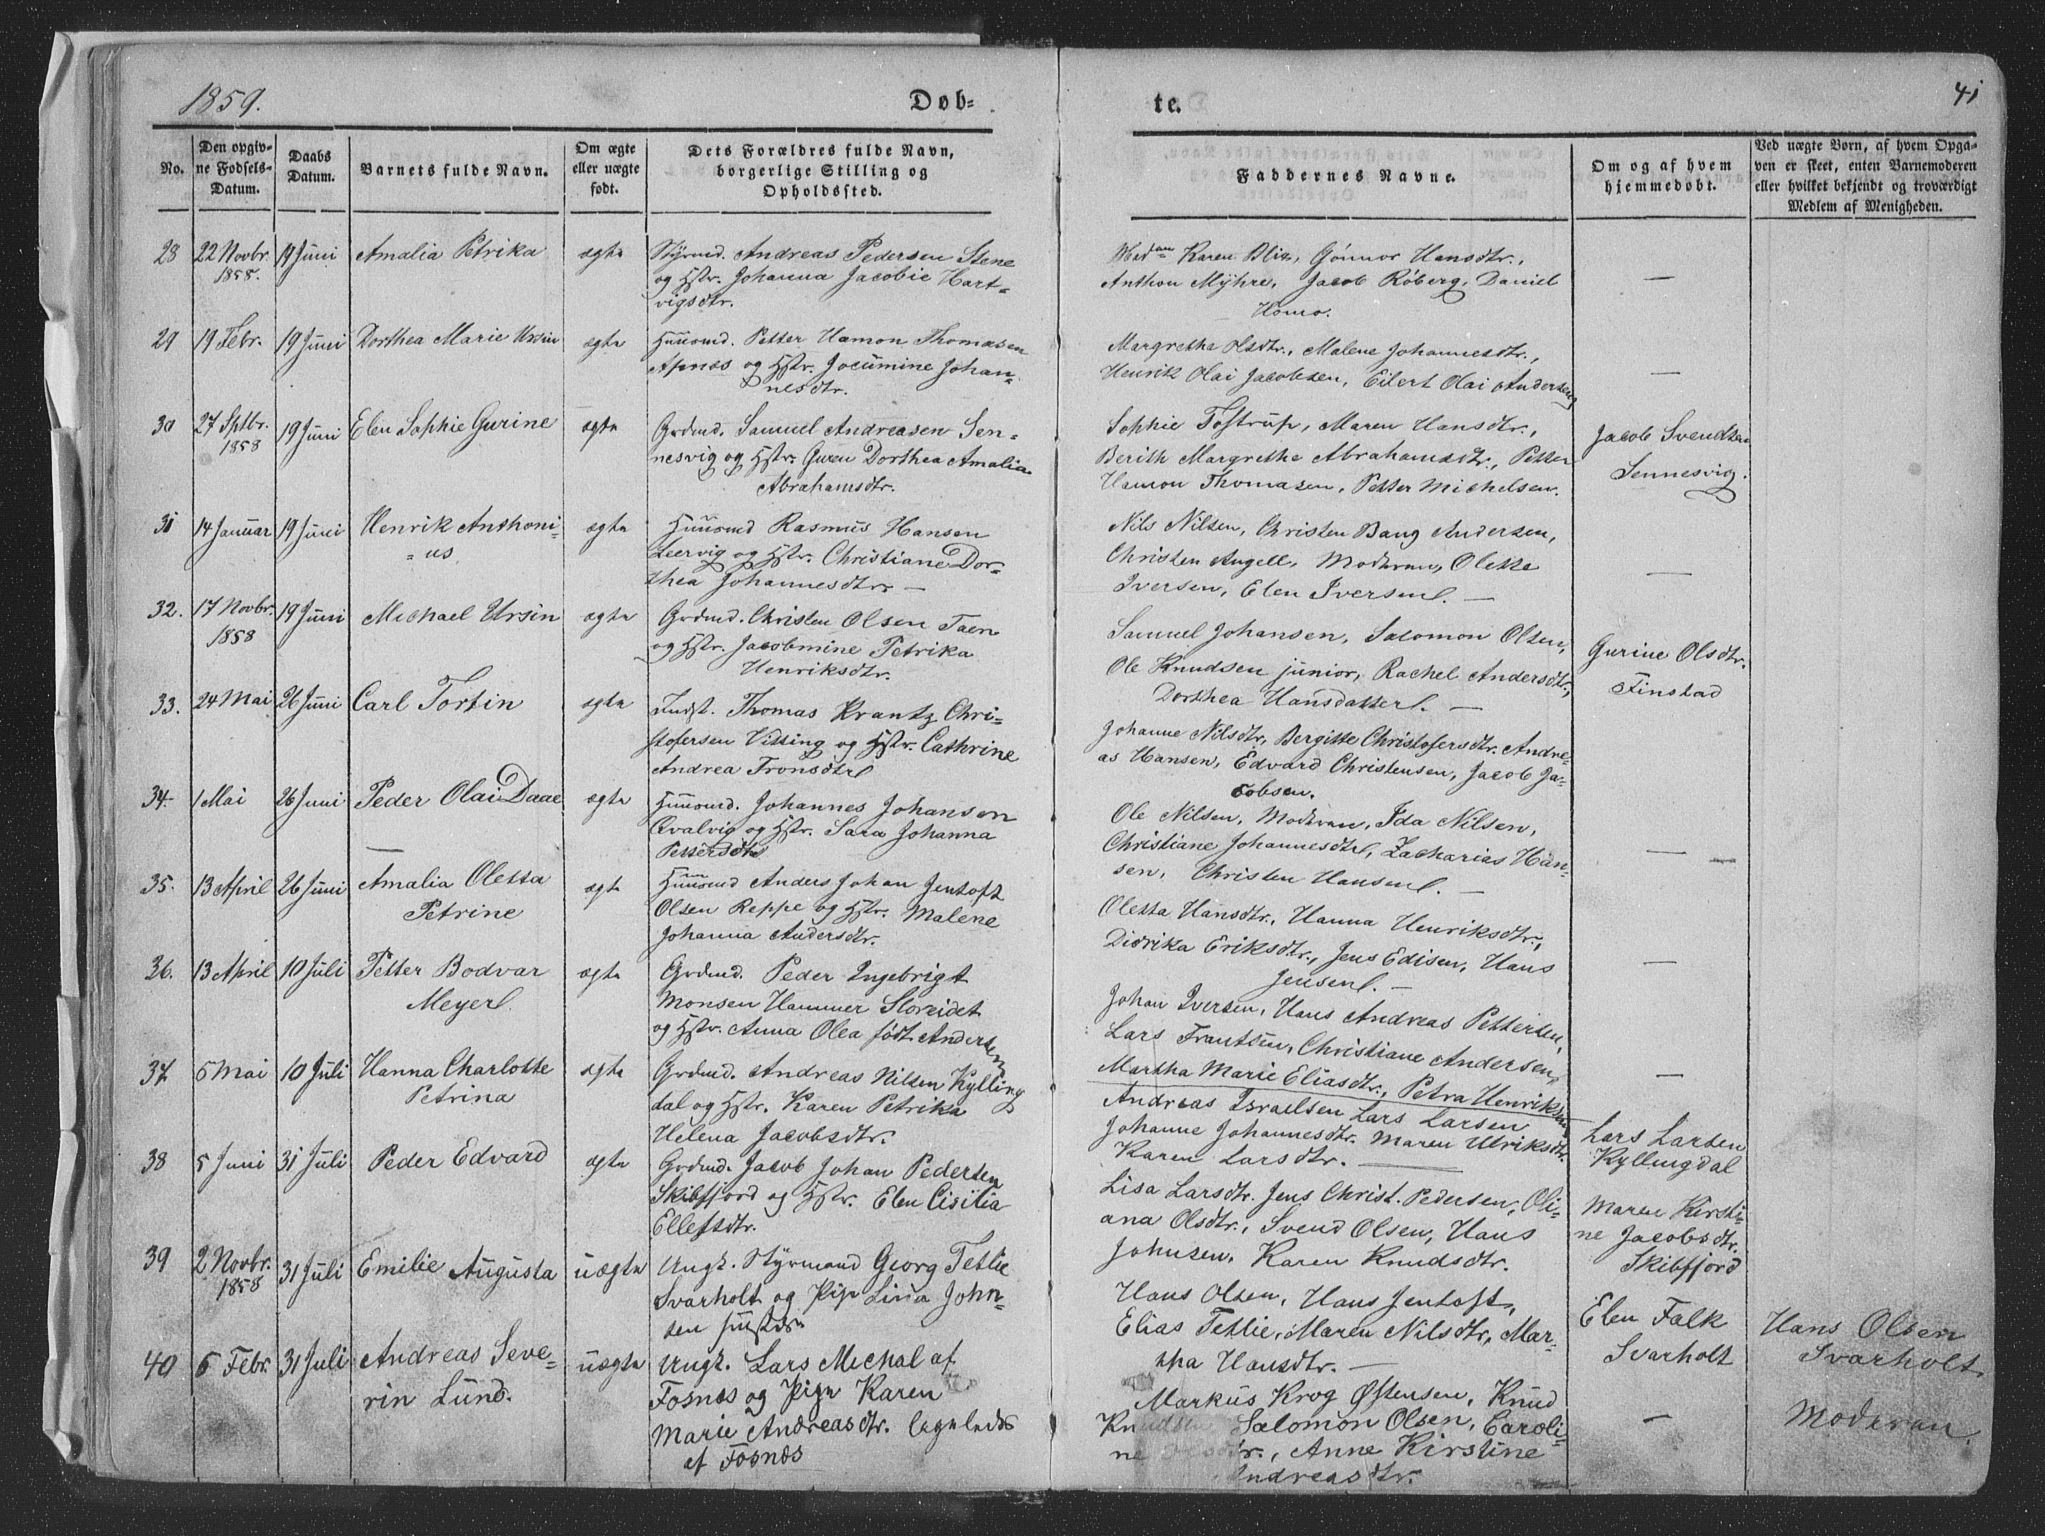 1859.
Døb-
te.
41
No.
Den opgiv-
ne Fødsels-
Datum.
Daabs
Datum.
Barnets fulde Navn.
Om ægte
eller uægte
født.
Dets Forældres fulde Navn,
borgerlige Stilling og
Opholdssted.
Faddernes Navne.
Om og af hvem
hjemmedøbt.
Ved uægte Børn, af hvem Opga-
ven er skeet, enten Barnemoderen
eller hvilket bekjendt og troværdigt
Medlem af Menigheden.
28
22 Novbr.
1858.
19 Juni
Amalia Petrika
ægte
Styrmd. Andreas Pedersen Stene
og Hstr. Johanna Jacobie Hart-
vigsdtr.
Madam Karen Blix, Gönnor Hansdtr.,
Anthon Mÿhre, Jacob Röberg, Daniel
Homo.
—
29
19 Febr.
19 Juni
Dorthea Marie Ursin
ægte
Huusmd. Petter Hamon Thomasen
Apnæs og Hstr. Jocumine Johan-
nesdtr.
Margretha Olsdtr., Malene Johannesdtr.,
Henrik Olai Jacobsen, Eilert Olai Andersen
—
30
27 Sptbr.
1858
19 Juni
Elen Sophie Gurine
ægte
Grdmd. Samuel Andreasen Sen-
nesvig og Hstr. Guren Dorthea Amalia
Abrahamsdtr.
Sophie Tostrup, Maren Hansdtr.,
Berith Margrethe Abrahamsdtr., Petter
Hamon Thomasen, Petter Michelsen.
Jacob Svendsen
Sennesvig.
31
14 Januar
19 Juni
Henrik Anthoni-
=us
ægte
Huusmd Rasmus Hansen
Leervig og Hstr. Christiane Dor-
thea Johannesdtr. —
Nils Nilsen, Christen Bang Andersen,
Christen Angell, Moderen, Olette
Iversen, Elen Iversen. —
—
32.
17 Novbr.
1858
19 Juni
Michael Ursin
ægte
Grdmd. Christen Olsen Taen
og Hstr. Jacobmine Petrika
Henriksdtr.
Samuel Johansen, Salomon Olsen,
Ole Knudsen junior, Rachel Andersdtr.,
Dorthea Hansdatter. —
Gurine Olsdtr.
Finstad
33.
24 Mai
26 Juni
Carl Tortin
ægte
Indst. Thomas Krantz Chri-
stofersen Vitting og Hstr. Cathrine
Andrea Tronsdtr
Johanne Nilsdtr, Bergitte Christofersdtr. Andre-
as Hansen, Edvard Christensen, Jacob Ja-
cobsen.
34.
1 Mai
26 Juni
Peder Olai Daae
—
ægte
Huusmd. Johannes Johansen
Qvalvig og Hstr. Sara Johanna
Pettersdtr
Ole Nilsen, Moderen, Ida Nilsen,
Christiane Johannesdtr, Zacharias Han-
sen, Christen Hansen. —
—
35.
13 April
26 Juni
Amalia Oletta
Petrine
ægte
Huusmd Anders Johan Jentoft
Olsen Reppe og Hstr. Malene
Johanna Andersdtr.
Oletta Hansdtr., Hanna Henriksdtr.,
Didrika Eriksdtr., Jens Edisen, Hans
Jensen. —
—
36.
13 April
10 Juli
Petter Bodvar
Meyer.
ægte
Grdmd. Peder Ingebrigt
Monsen Hammer Storeidet
og Hstr. Anna Olea født Andersen
Johan Iversen, Hans Andreas Pettersen,
Lars Frantsen, Christiane Andersen,
Martha Marie Eliasdtr., Petra Henriksen
—
37
5 Mai
10 Juli
Hanna Charlotte
Petrina
ægte
Grdmd. Andreas Nilsen Kylling
dal og Hstr. Karen Petrika
Helena Jacobsdtr.
Andreas Israelsen Lars Larsen
Johanne Johannesdtr. Maren Ulriksdtr.
Karen Larsdtr. —
Lars Larsen
Kyllingdal
38
5 Juni
31 Juli
Peder Edvard
ægte
Grdmd. Jacob Johan Pedersen
Skibfjord og Hstr. Elen Cisilia
Ellefsdtr.
Lisa Larsdtr. Jens Christ. Pedersen, Oli-
ana Olsdtr., Svend Olsen, Hans
Johnsen, Karen Knudsdtr.
Maren Kirsti-
ne Jacobsdtr.
Skibfjord
39
2 Novbr.
1858
31 Juli
Emilie Augusta
uægte
Ungk. Styrmand Georg Tetlie
Svarholt og Pige Lina John-
sen
Hans Olsen, Hans Jentoft,
Elias Tetlie, Maren Nilsdtr, Mar-
tha Hansdtr. —
Elen Falk
Svarholt
Hans Olsen
Svarholt.
40
6 Febr.
31 Juli
Andreas Seve-
rin Lund.
uægte
Ungk. Lars Michal af
Fosnæs og Pige Karen
Marie Andreasdtr.
af Fosnæs
Markus Krog Østensen, Knud
Knudsen Salomon Olsen, Caroli-
ne Olsdtr., Anne Kirstine
Andreasdtr.
—
Moderen.